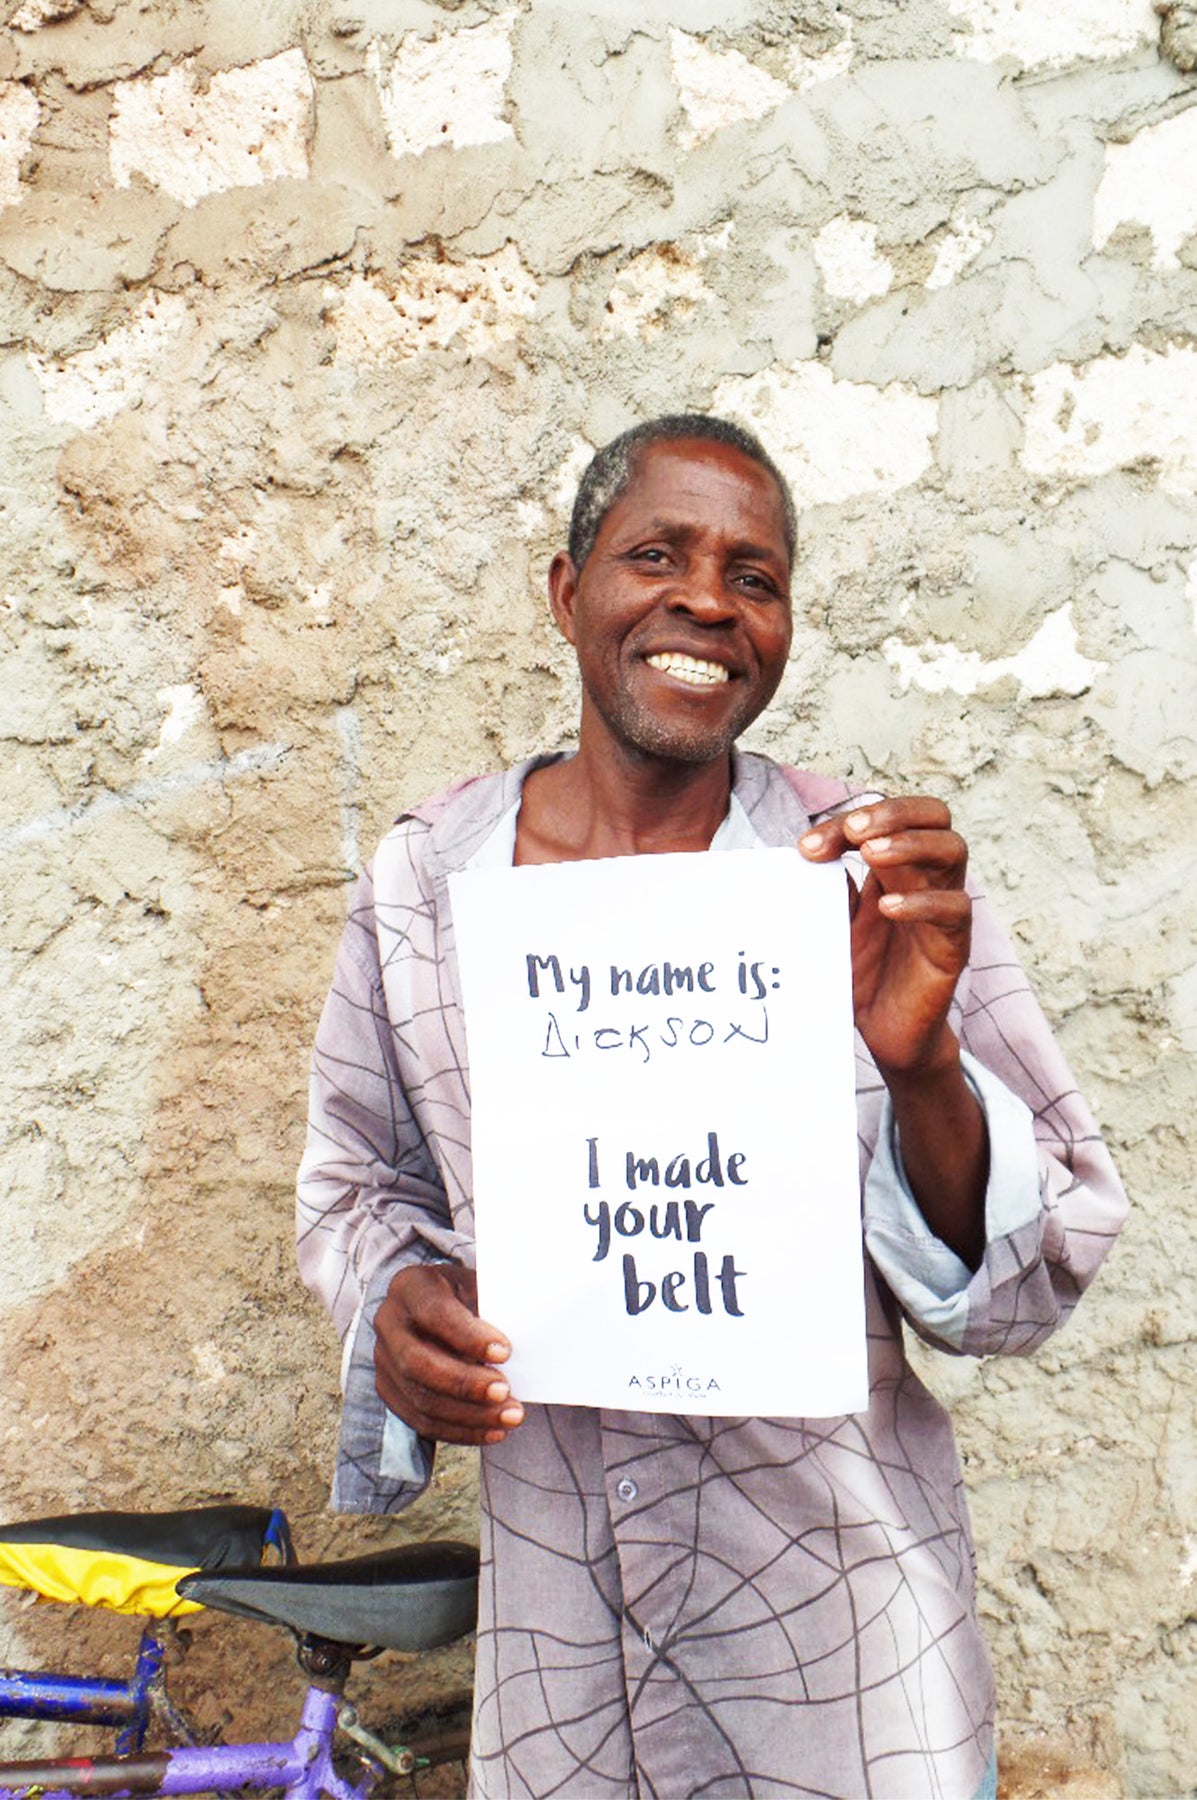 My name is:
DICKSON
I made
your
belt
ASPIGA